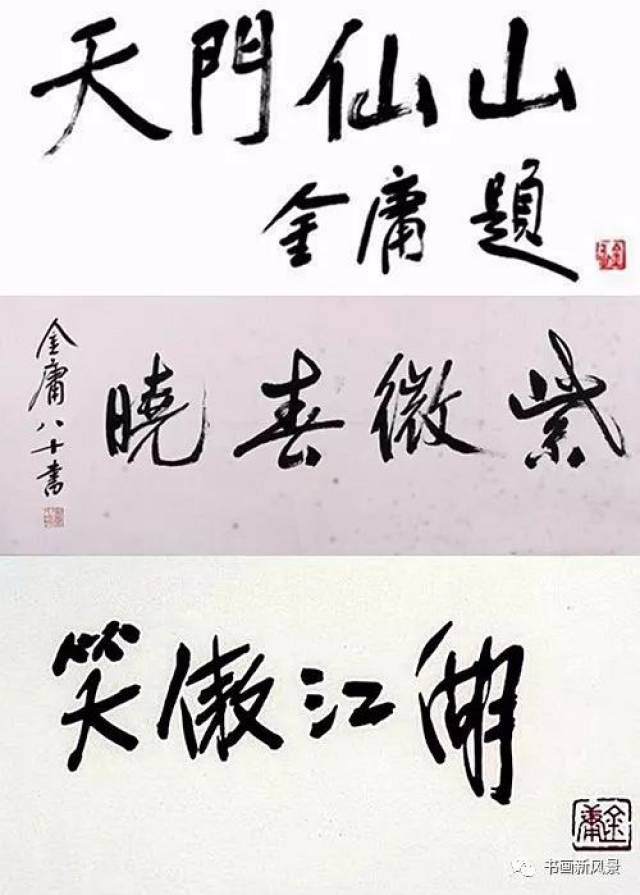 天門仙山
金庸題
紫微春曉
金庸八十書
笑傲江湖
金庸
书画新风景